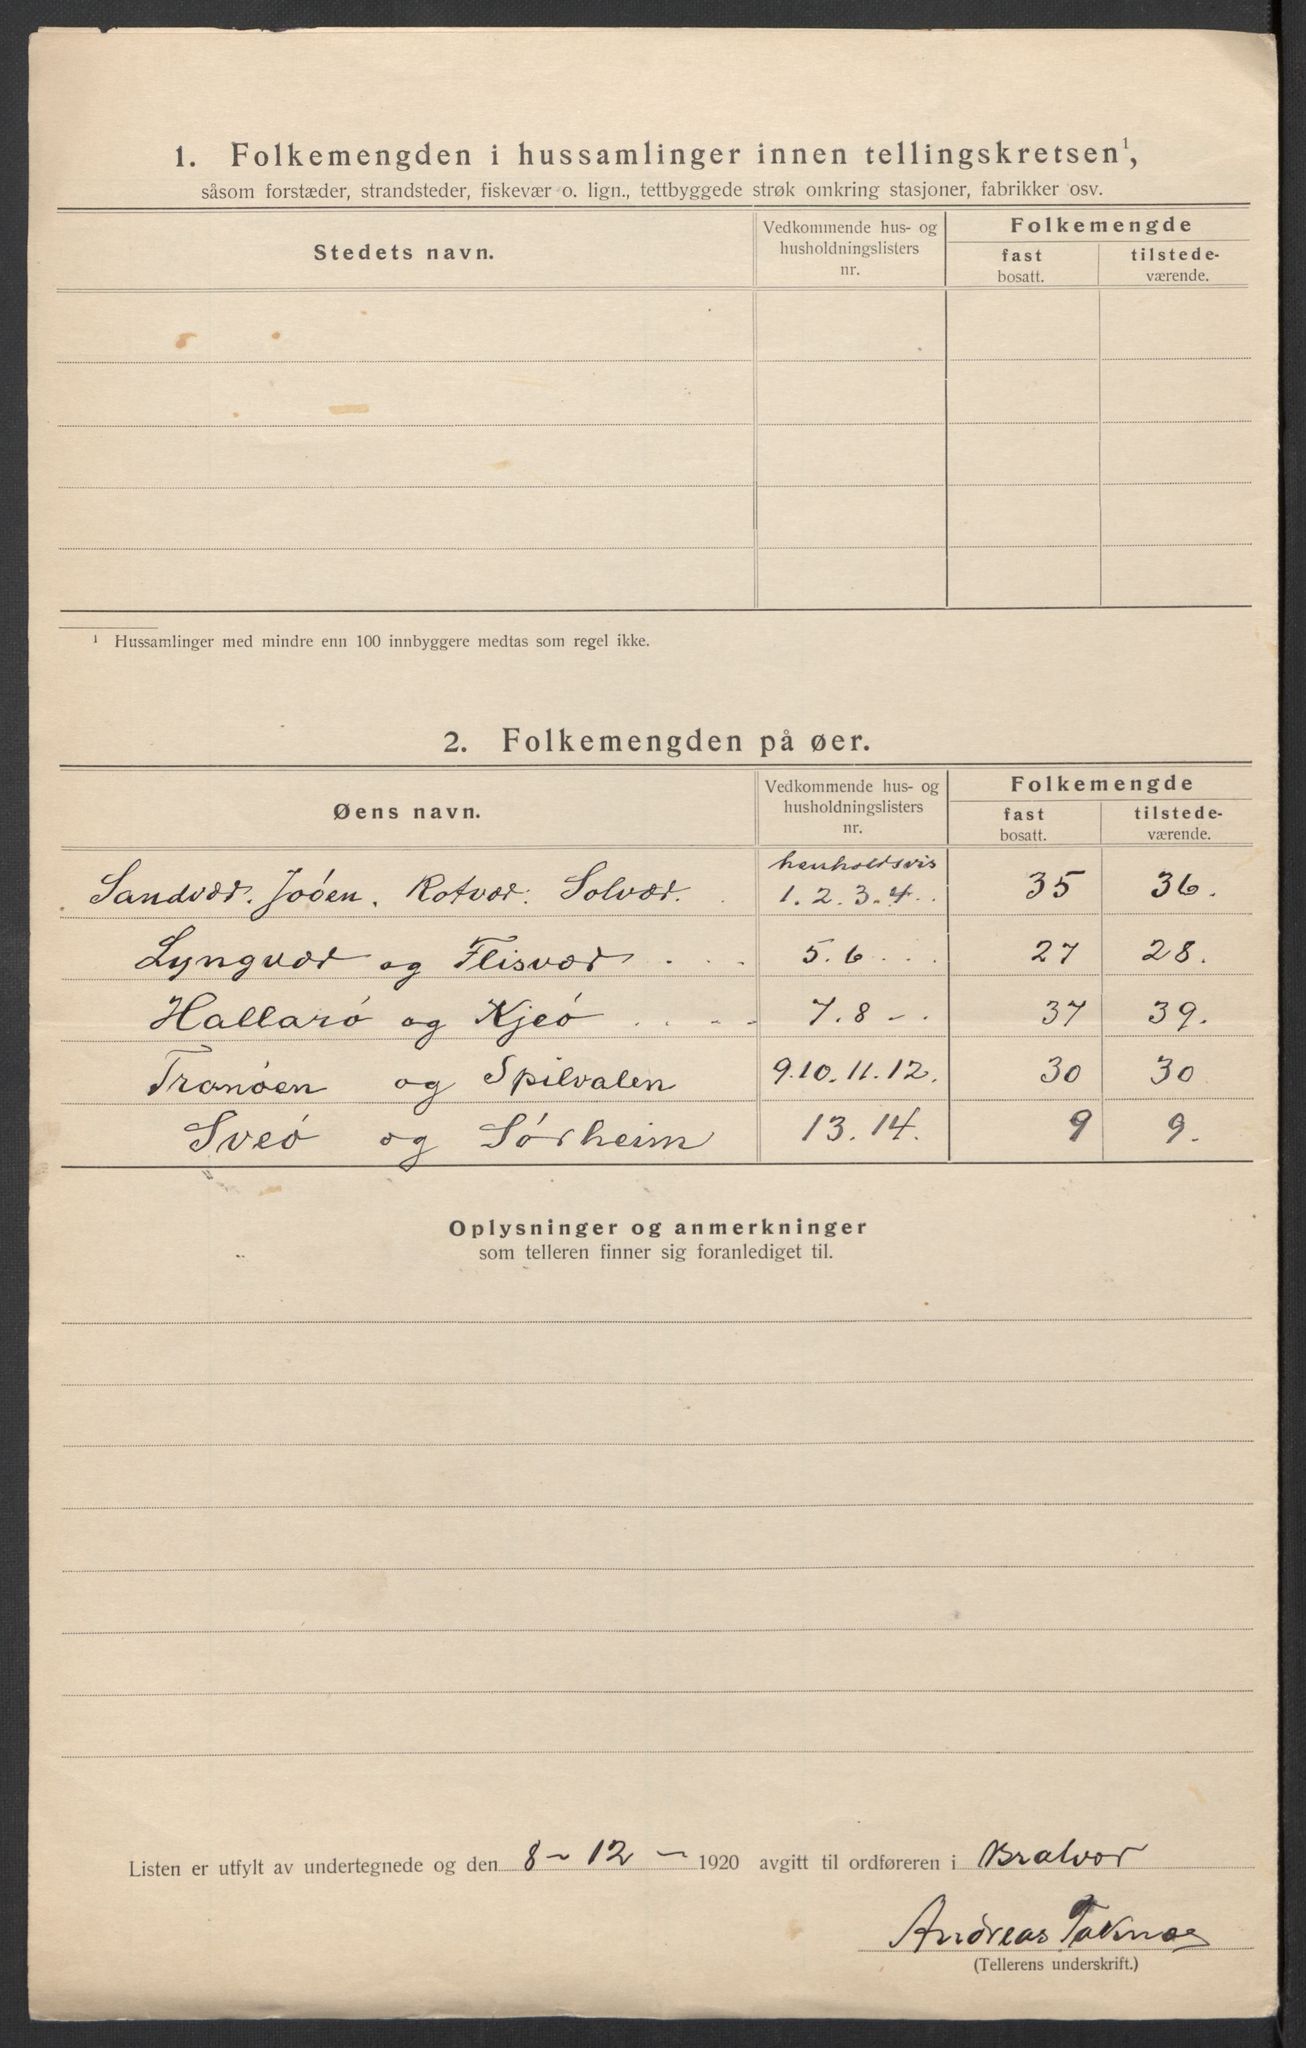 1. Folkemengden i hussamlinger innen tellingskretsen¹,
såsom forstæder, strandsteder, fiskevær o. lign., tettbyggede strøk omkring stasjoner, fabrikker osv.
Stedets navn.
Vedkommende hus- og husholdningslisters nr.
Folkemengde
fast bosatt.
tilstede-værende.
¹ Hussamlinger med mindre enn 100 innbyggere medtas som regel ikke.
2. Folkemengden på øer.
Øens navn.
Vedkommende hus- og husholdningslisters nr.
Folkemengde
fast bosatt.
tilstede-værende.
henholdsvis
Sandvær. Joøen. Kotvær. Solvær. 1. 2. 3. 4. 35 36.
Lyngvær og Flisvær 5. 6 27 28.
Hallarø og Kjeø 7. 8 37 39.
Tranøen og Spilvalen 9. 10. 11. 12. 30 30
Sveø og Sørheim 13. 14. 9 9.
Oplysninger og anmerkninger
som telleren finner sig foranlediget til.
Listen er utfylt av undertegnede og den 8 - 12 - 1920 avgitt til ordføreren i Bratvær
Andreas Taknæs
(Tellerens underskrift.)